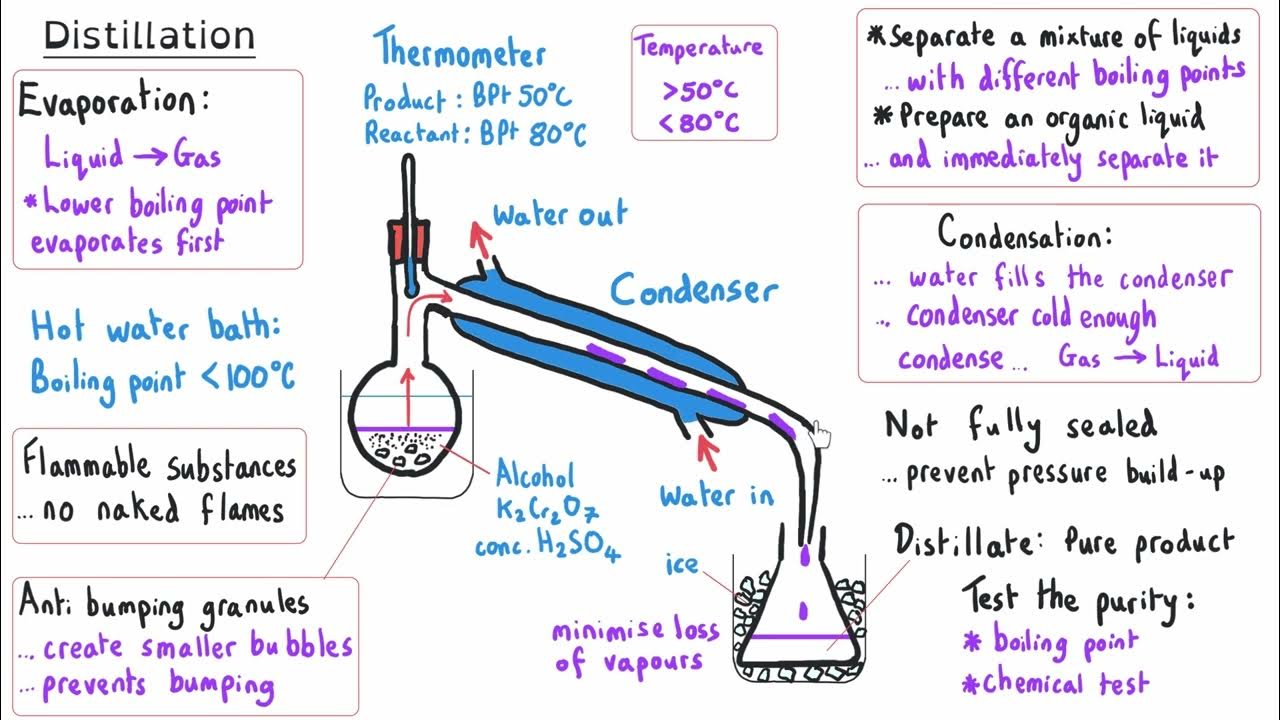 Distillation
Evaporation:
Liquid → Gas
*Lower boiling point
evaporates first
Hot water bath:
Boiling point <100°C
Flammable substances
... no naked flames
Anti bumping granules
... create smaller bubbles
... prevents bumping
Thermometer
Product : BPt 50°C
Reactant : BPt 80°C
Temperature
>50°C
<80°C
Water out
Condenser
Water in
Alcohol
K₂Cr₂O₇
conc. H₂SO₄
ice
minimise loss
of vapours
*Separate a mixture of liquids
... with different boiling points
*Prepare an organic liquid
... and immediately separate it
Condensation:
... water fills the condenser
... condenser cold enough
condense ... Gas → Liquid
Not fully sealed
... prevent pressure build-up
Distillate: Pure product
Test the purity:
* boiling point
* chemical test